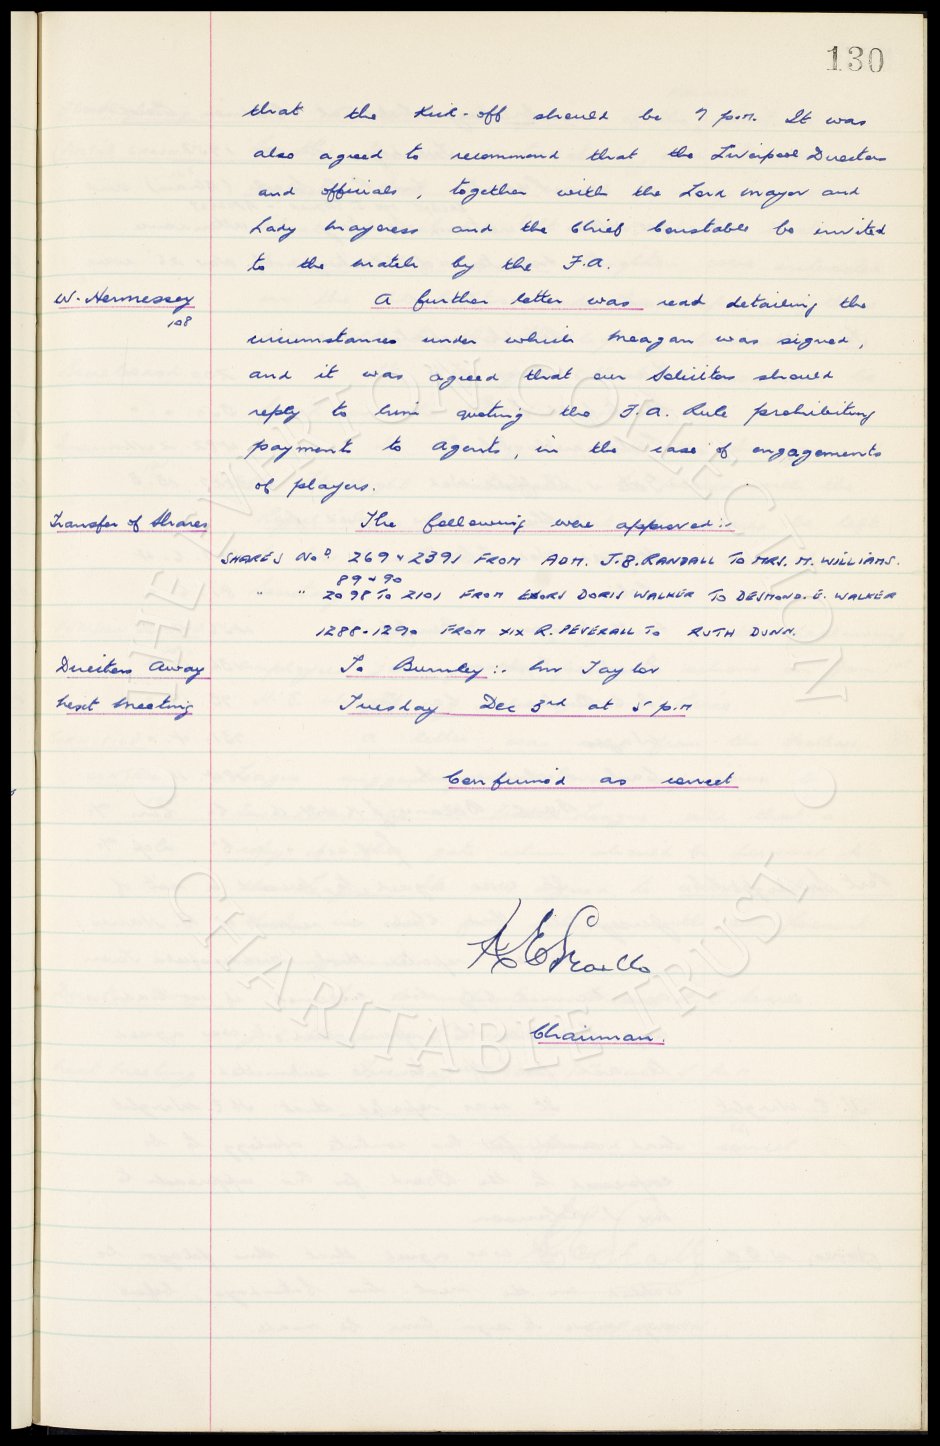 130
that the Kick-off should be 7 p.m. It was
also agreed to recommend that the Liverpool Directors
and officials, together with the Lord Mayor and
Lady Mayoress and the Chief Constable be invited
to the match by the F.A.
W. Hennessey A further letter was read detailing the
108
circumstances under which Meagan was signed,
and it was agreed that our Solicitors should
reply to him quoting the F.A. Rule prohibiting
payments to agents, in the case of engagements
of players.
Transfer of Shares The following were approved:-
SHARES Nos 269 & 2391 FROM ADM. J.B. RANDALL TO MRS. M. WILLIAMS.
89 & 90
" " 2098 TO 2101 FROM EXORS DORIS WALKER TO DESMOND. E. WALKER
1288-1290 FROM XIX R. PEVERALL TO RUTH DUNN.
Directors Away To Burnley:- Mr Taylor
Next Meeting Tuesday Dec 3rd at 5 p.m
Confirmed as correct
Chairman.
THE EVERTON COLLECTION
CHARITABLE TRUST